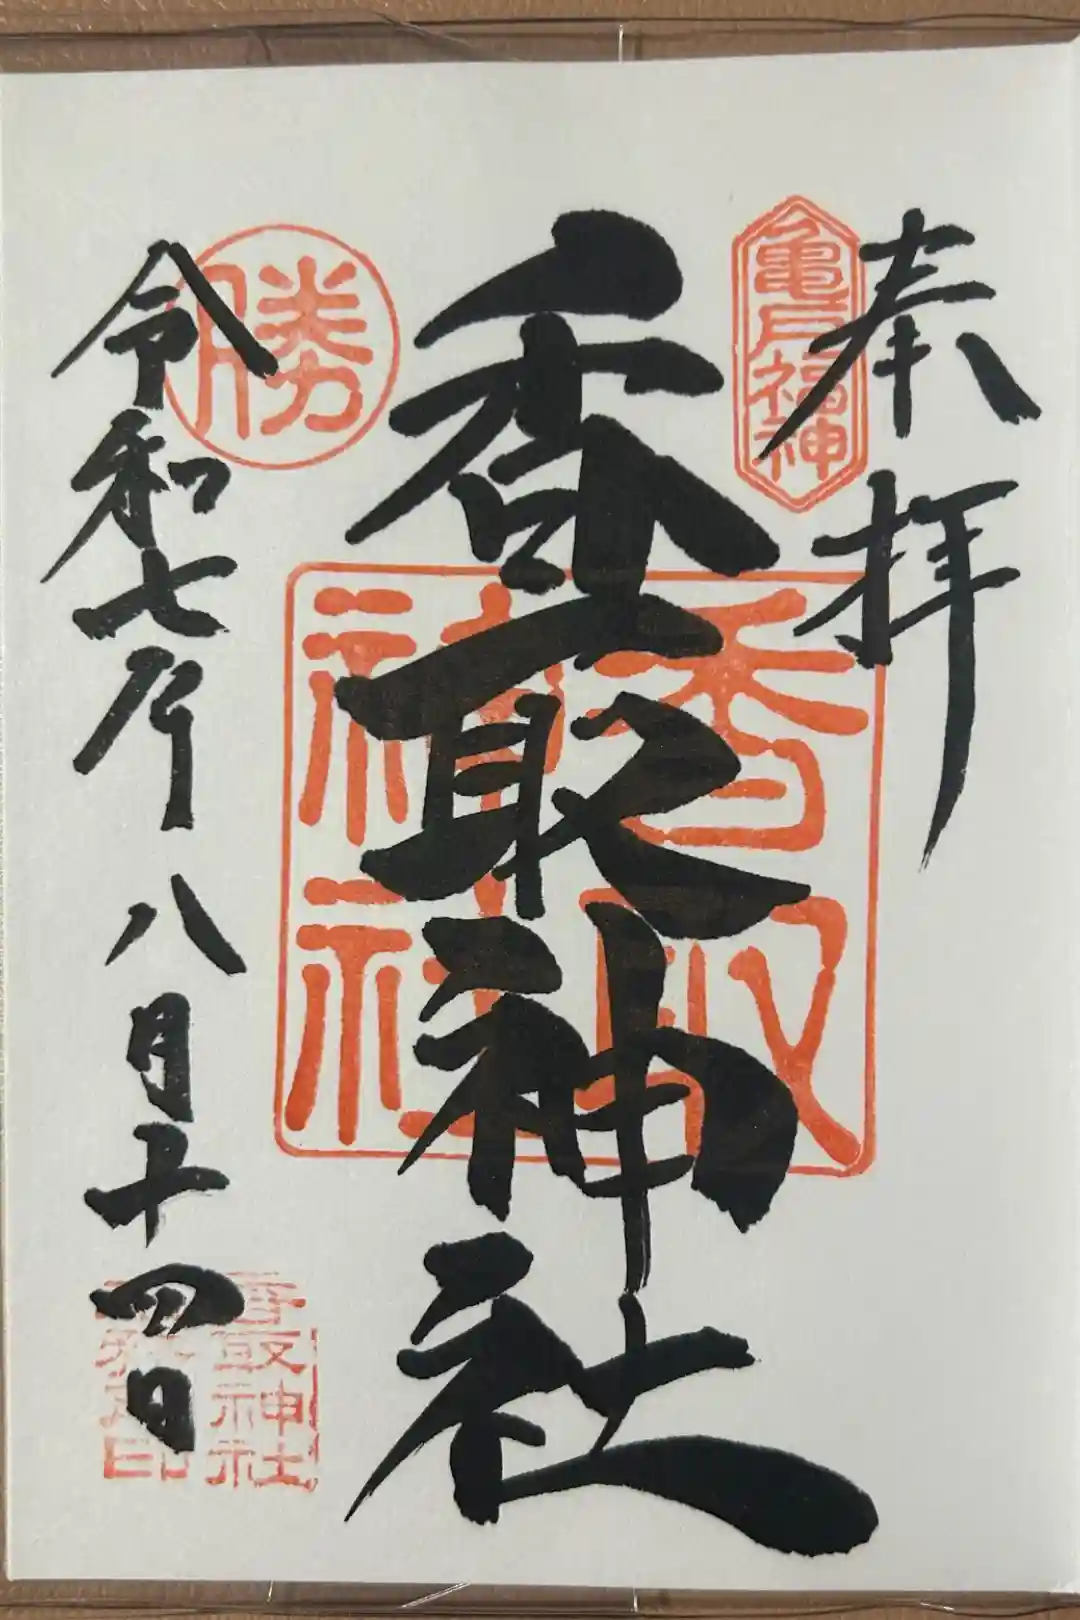 奉拝
亀戸福神
香取神社
香取神社
勝
令和七年八月十四日
香取神社